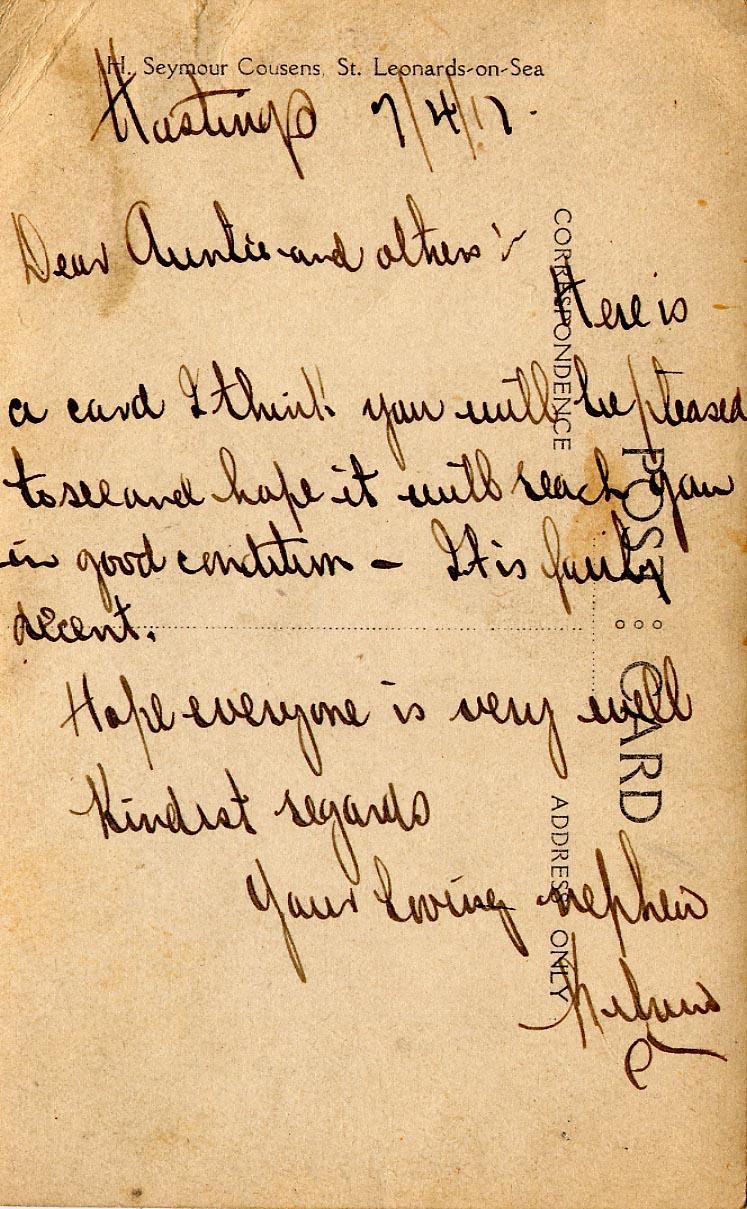 H. Seymour Cousens, St. Leonards-on-Sea
Hastings 7/4/17.
Dear Auntie and others :-
Here is
a card I think you will be pleased
to see and hope it will reach you
in good condition - It is fairly
decent.
Hope everyone is very well
Kindest regards
Your Loving nephew
CORRESPONDENCE
POST CARD
ADDRESS ONLY